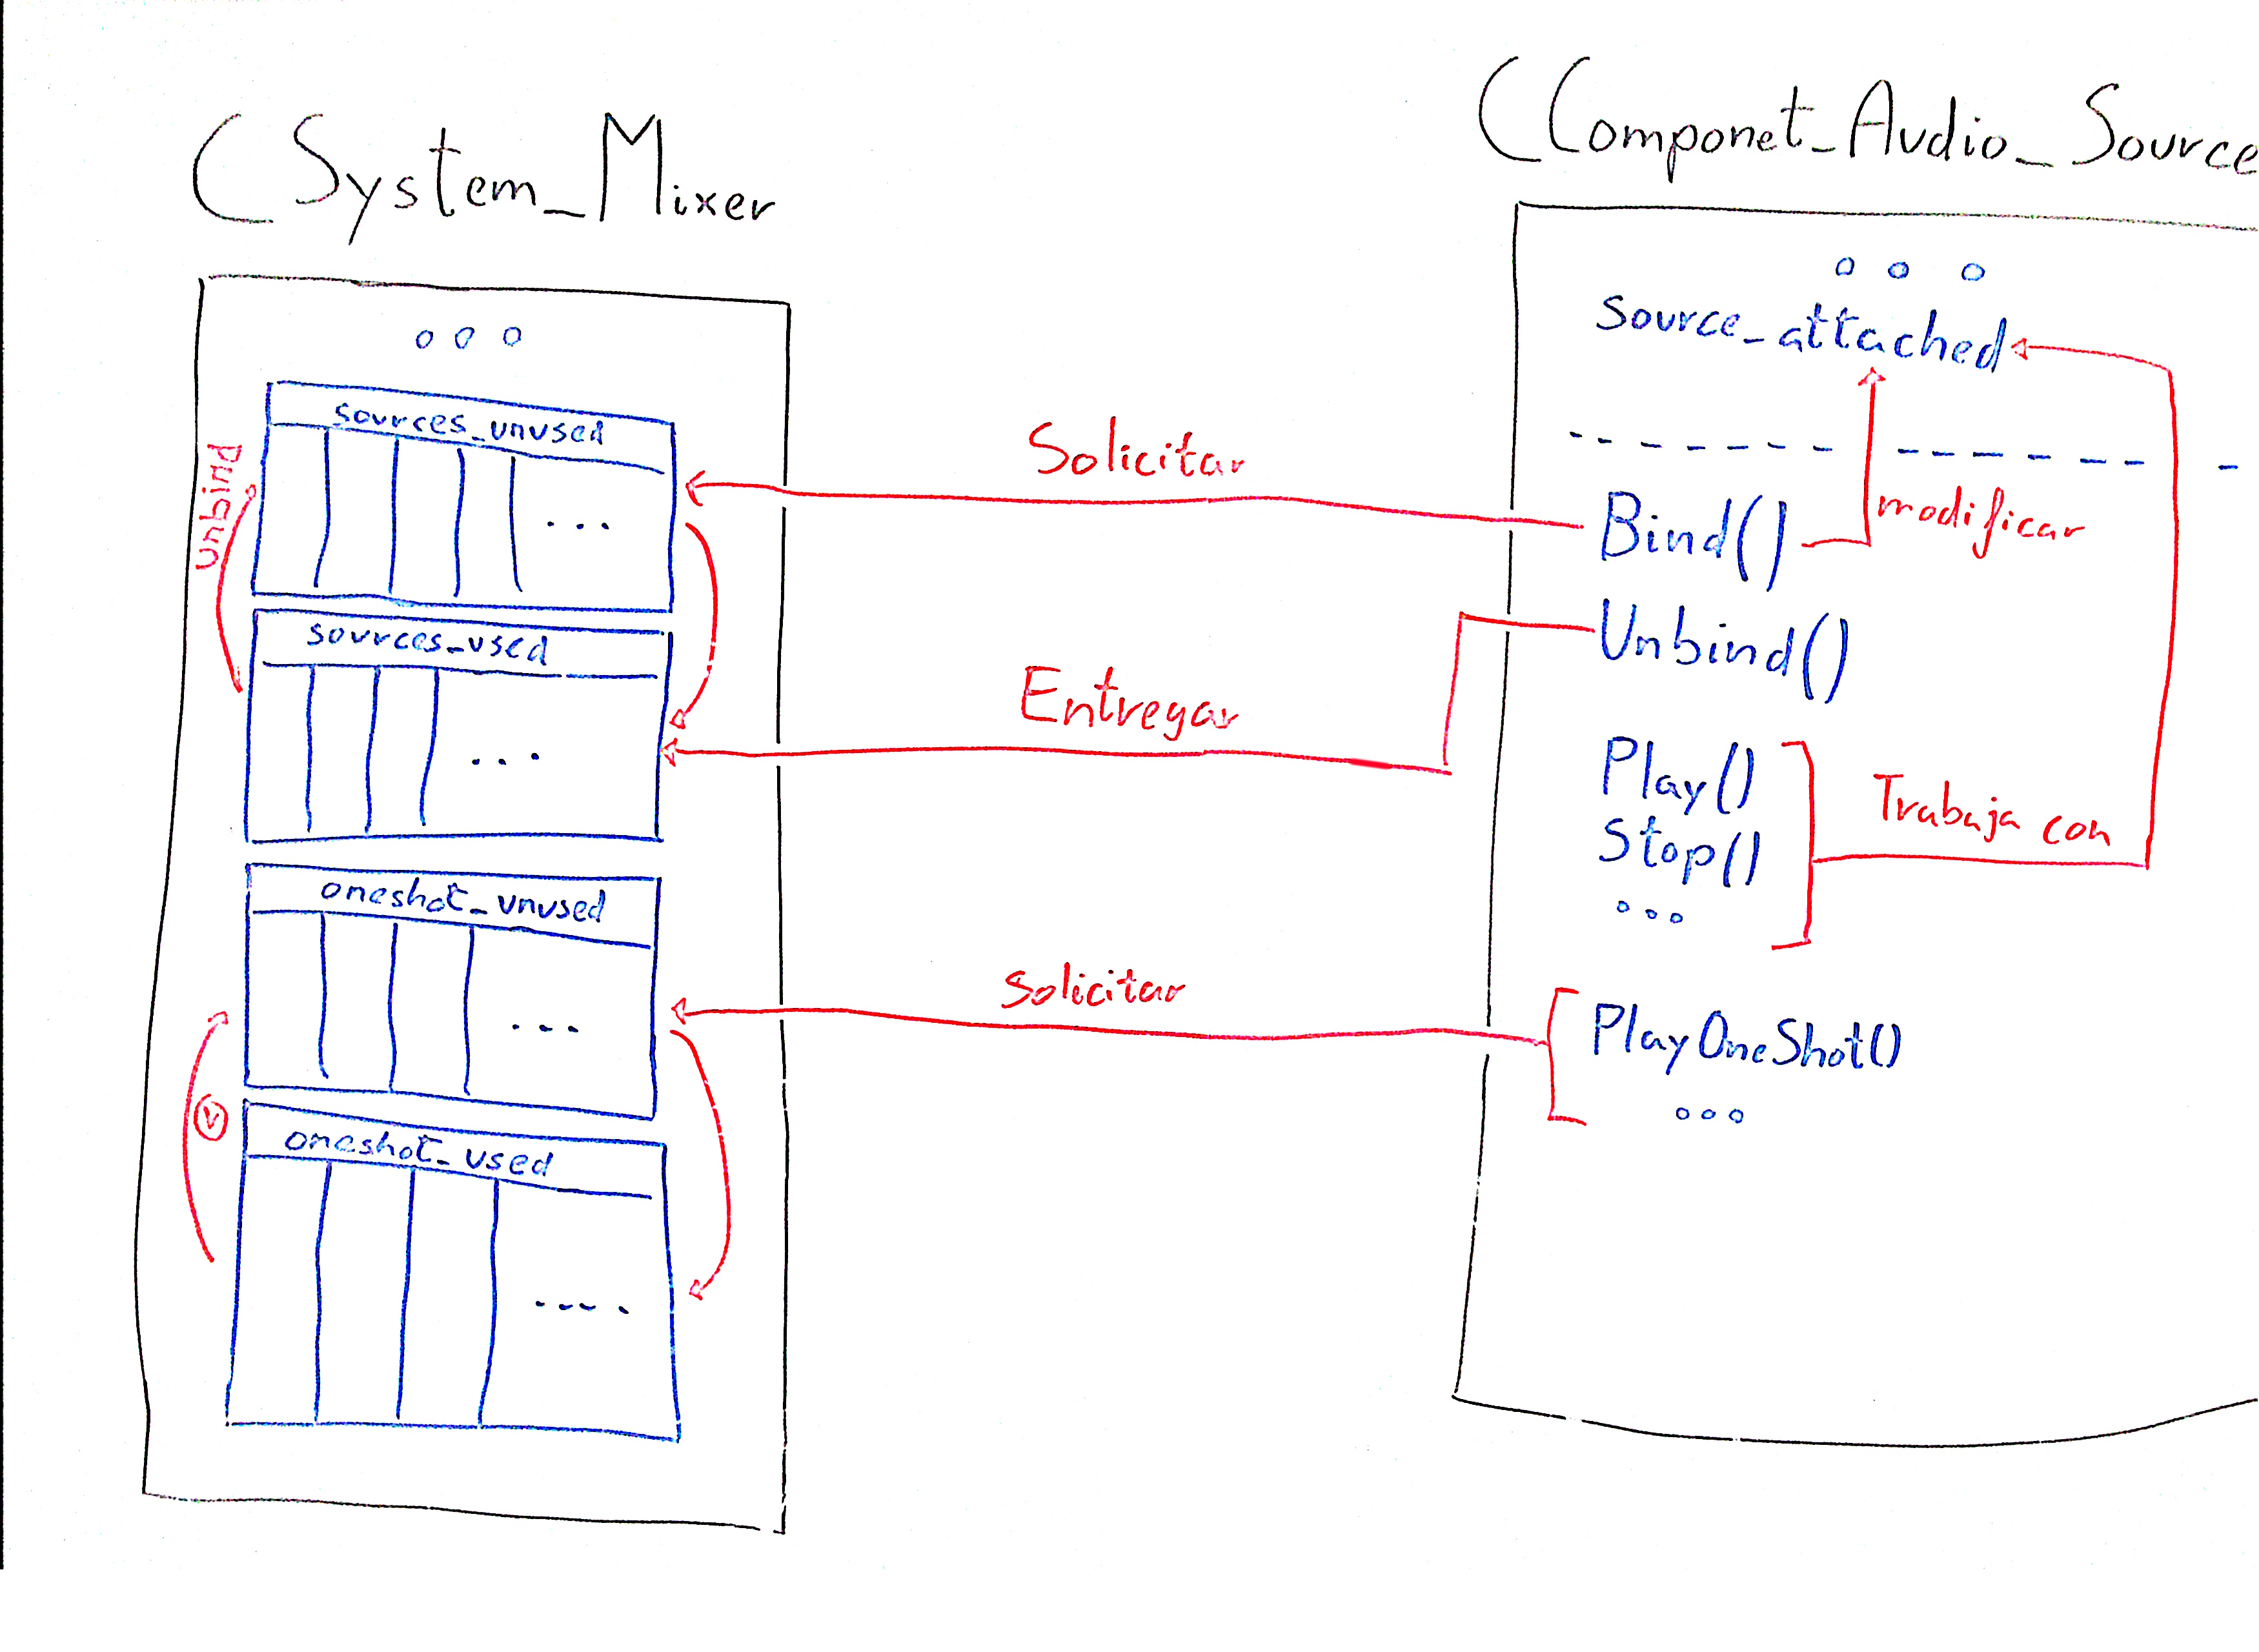 CSystem_Mixer
sources_unused
...
Unbind
sources_used
...
oneshot_unused
...
oneshot_used
....
Solicitar
Entregar
Solicitar
CComponet_Audio_Source
source_attached
Bind()
modificar
Unbind()
Play()
Stop()
Trabaja con
PlayOneShot()